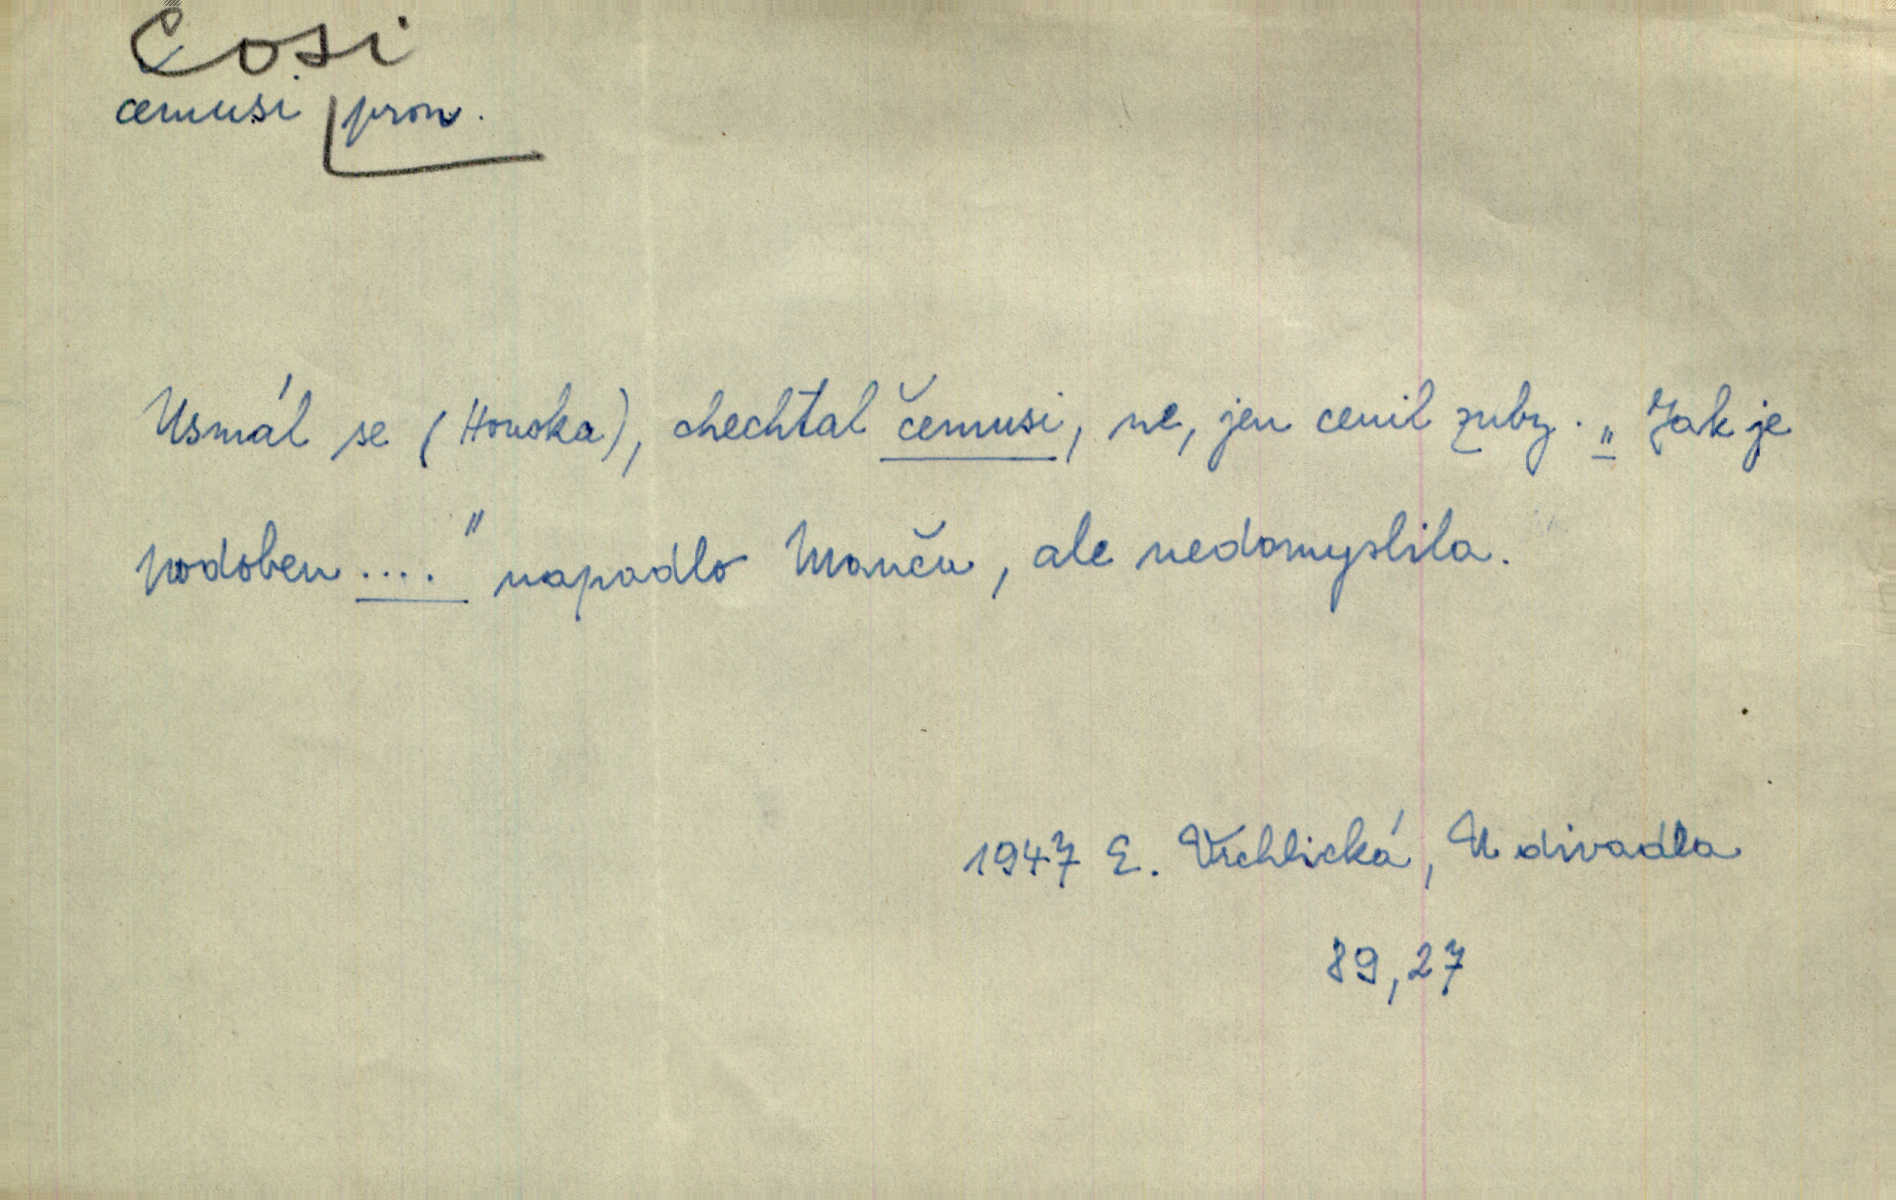 Cosi
čemusi pron.
Usmál se (Houska), chechtal čemusi, ne, jen cenil zuby. „Jak je
podoben ...." napadlo Manču, ale nedomyslila.
1947 E. Vrchlická, U divadla
89,27